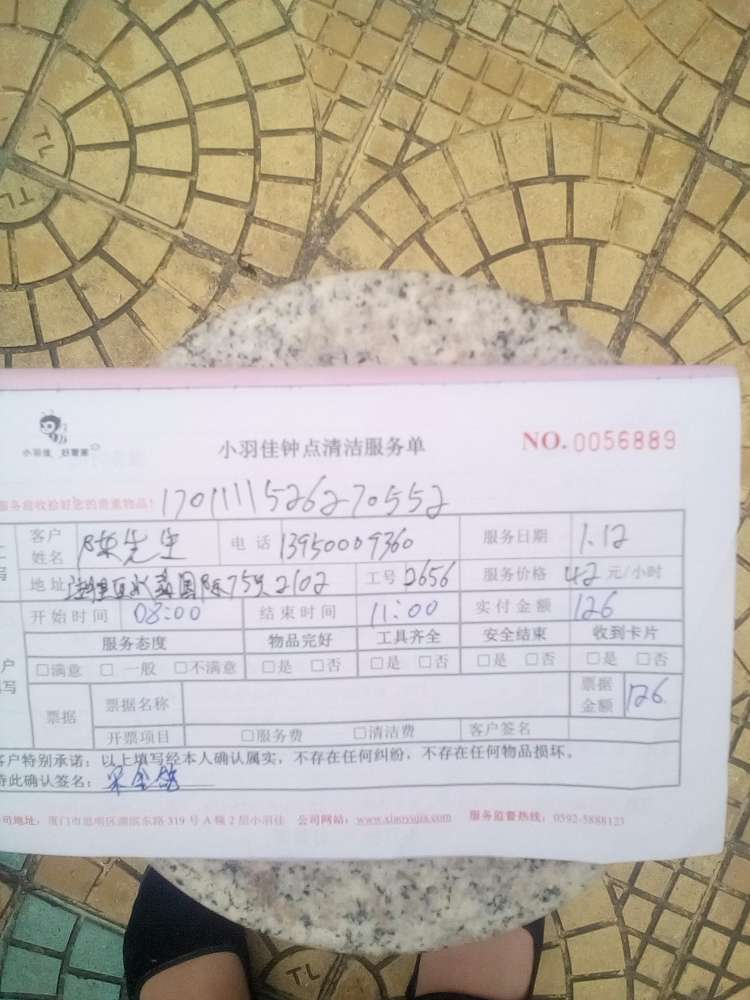 TL
TL
小羽佳 好管家
小羽佳钟点清洁服务单
NO.0056889
服务前收拾好您的贵重物品！
1701111526270552
客户姓名 陈先生 电话 13950009360 服务日期 1.12
地址 国际75号2102 工号 2656 服务价格 42 元/小时
开始时间 08:00 结束时间 11:00 实付金额 126
服务态度 物品完好 工具齐全 安全结束 收到卡片
□满意 □一般 □不满意 □是 □否 □是 □否 □是 □否 □是 □否
票据 票据名称 票据金额 126
开票项目 □服务费 □清洁费 客户签名
客户特别承诺：以上填写经本人确认属实，不存在任何纠纷，不存在任何物品损坏。
特此确认签名：
公司地址：厦门市思明区湖滨东路 319 号 A 幢 2 层小羽佳 公司网站：www.xiaoyujia.com 服务监督热线：0592-5888123
TL